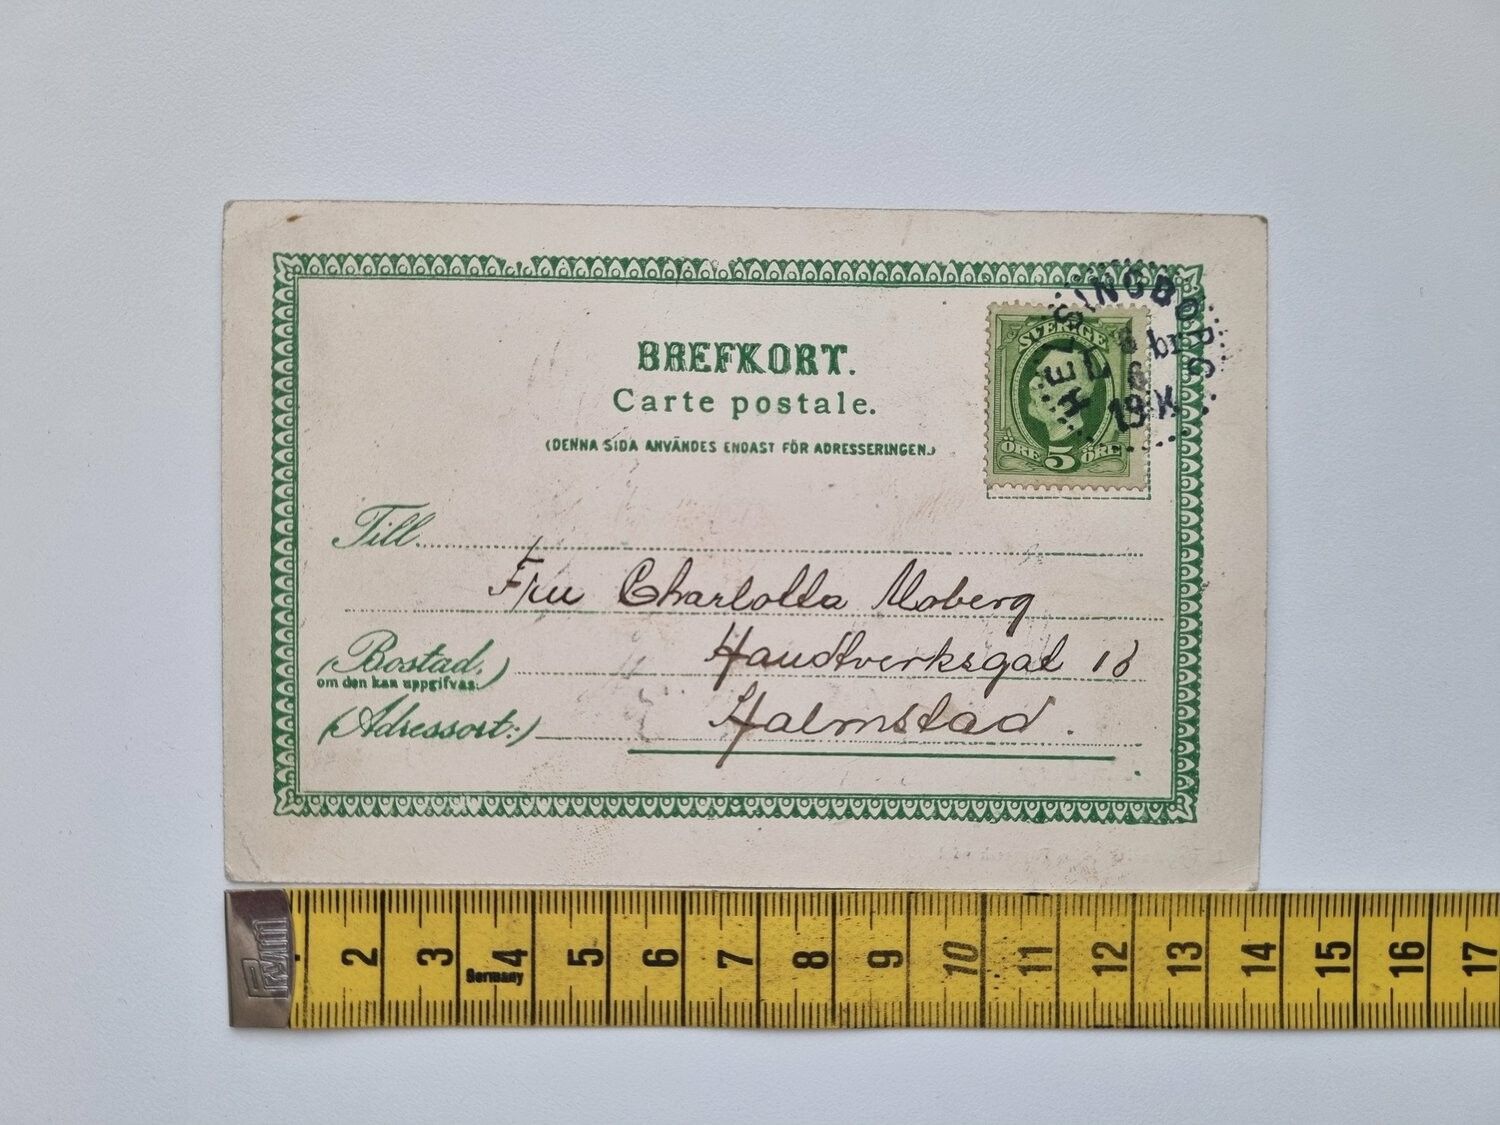 BREFKORT.
Carte postale.
(DENNA SIDA ANVÄNDES ENDAST FÖR ADRESSERINGEN.)
SVERIGE
ÖRE 5 ÖRE
HELSINGBORG
6
Till
Fru Charlotta Moberg
(Bostad,)
om den kan uppgifvas.
Handtverksgat 18
(Adressort:)
Halmstad.
Prym
2 3 4 5 6 7 8 9 10 11 12 13 14 15 16 17
Germany